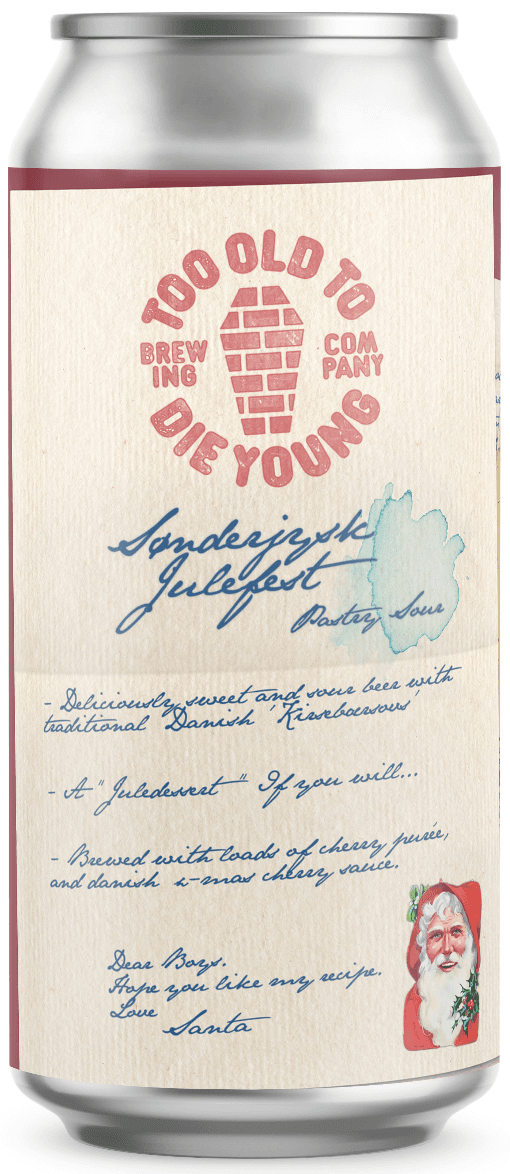 TOO OLD TO
BREW
ING
COM
PANY
DIE YOUNG
Sønderjysk
Julefest
Pastry Sour
- Deliciously sweet and sour beer with
traditional Danish 'Kirsebærsovs'
- A "Juledessert" If you will...
- Brewed with loads of cherry purée,
and danish x-mas cherry sauce.
Dear Boys.
Hope you like my recipe.
Love
Santa